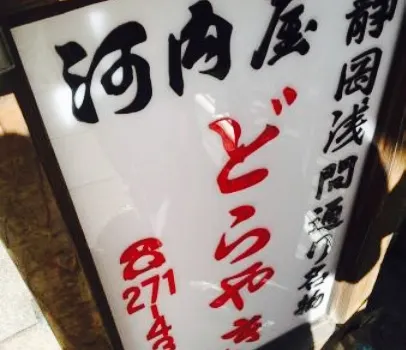 河内屋
静岡浅間通り名物
どらやき
☎271-43